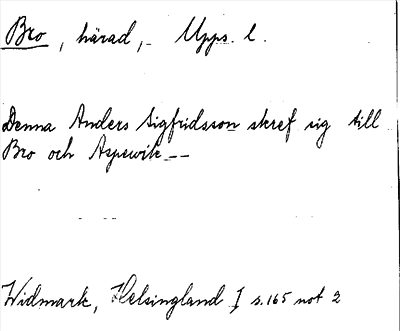 Bro, härad, Upps. l.
Denna Anders Sigfridsson skref sig till
Bro och Aspewik --
Widmark, Helsingland I s. 165 not 2